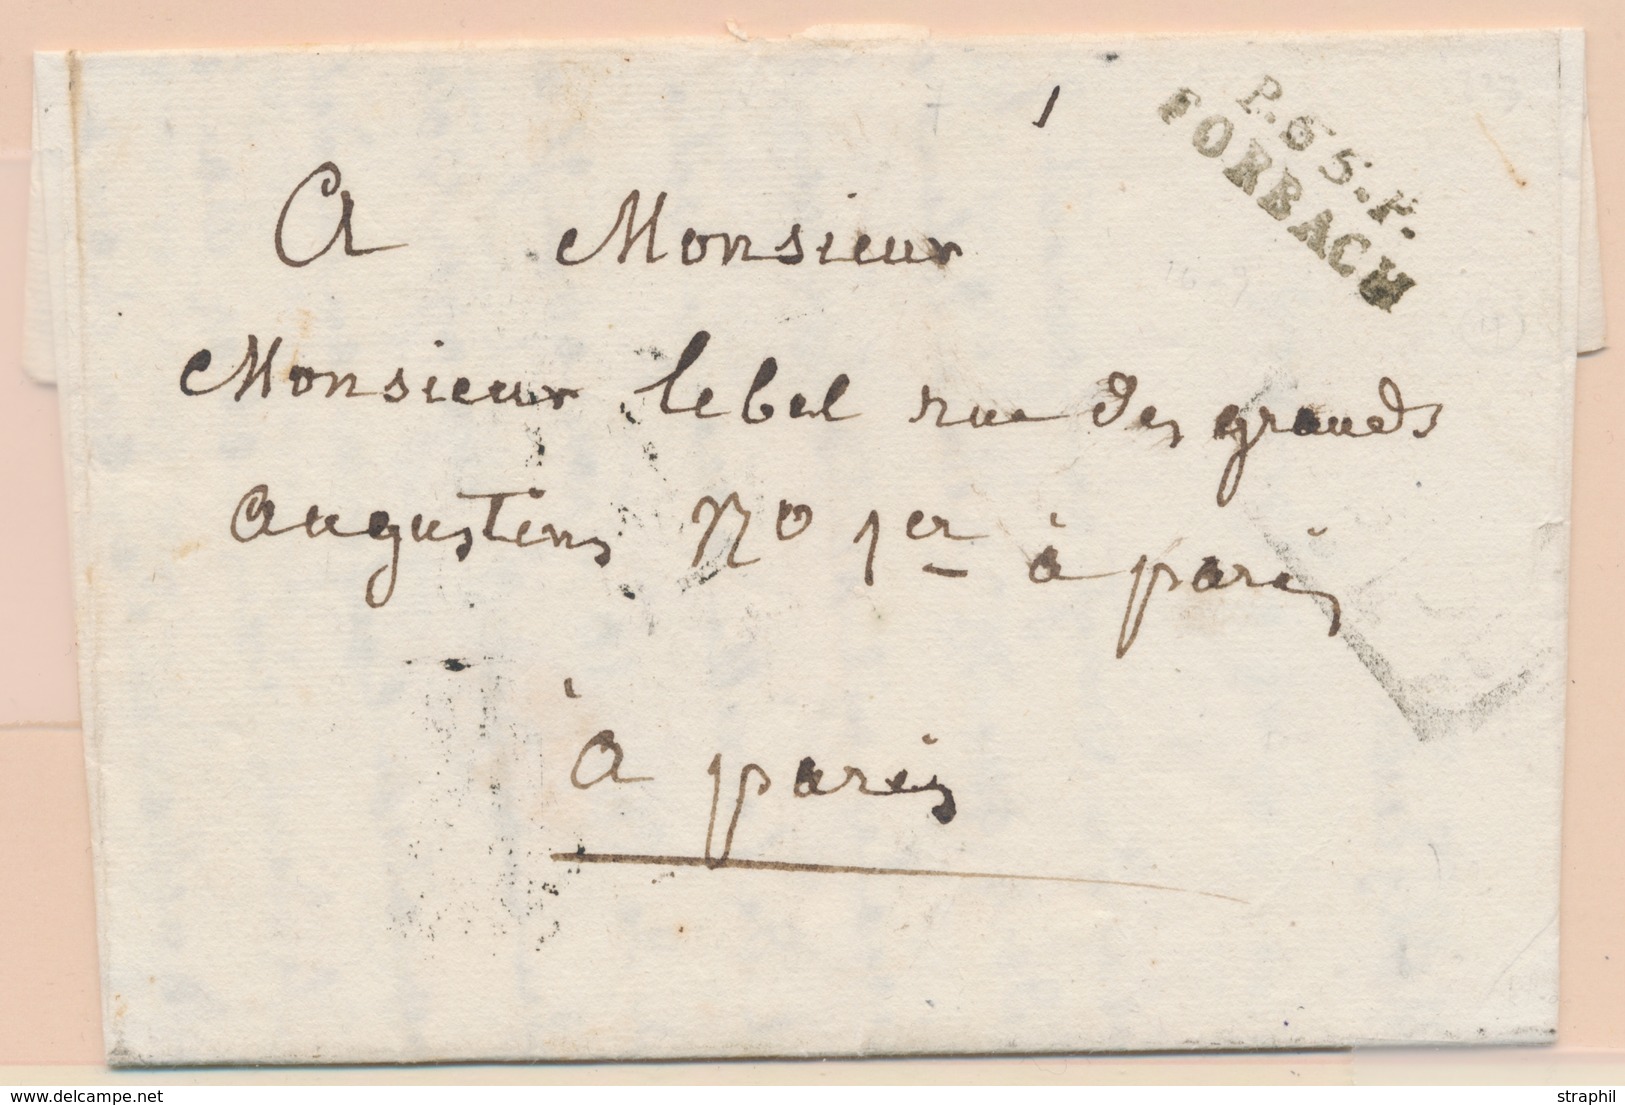 P.55.P.
FORBACH
A Monsieur
Monsieur lebel rue des grands
augustins no 1er à paris
à paris
delcampe.net
straphil